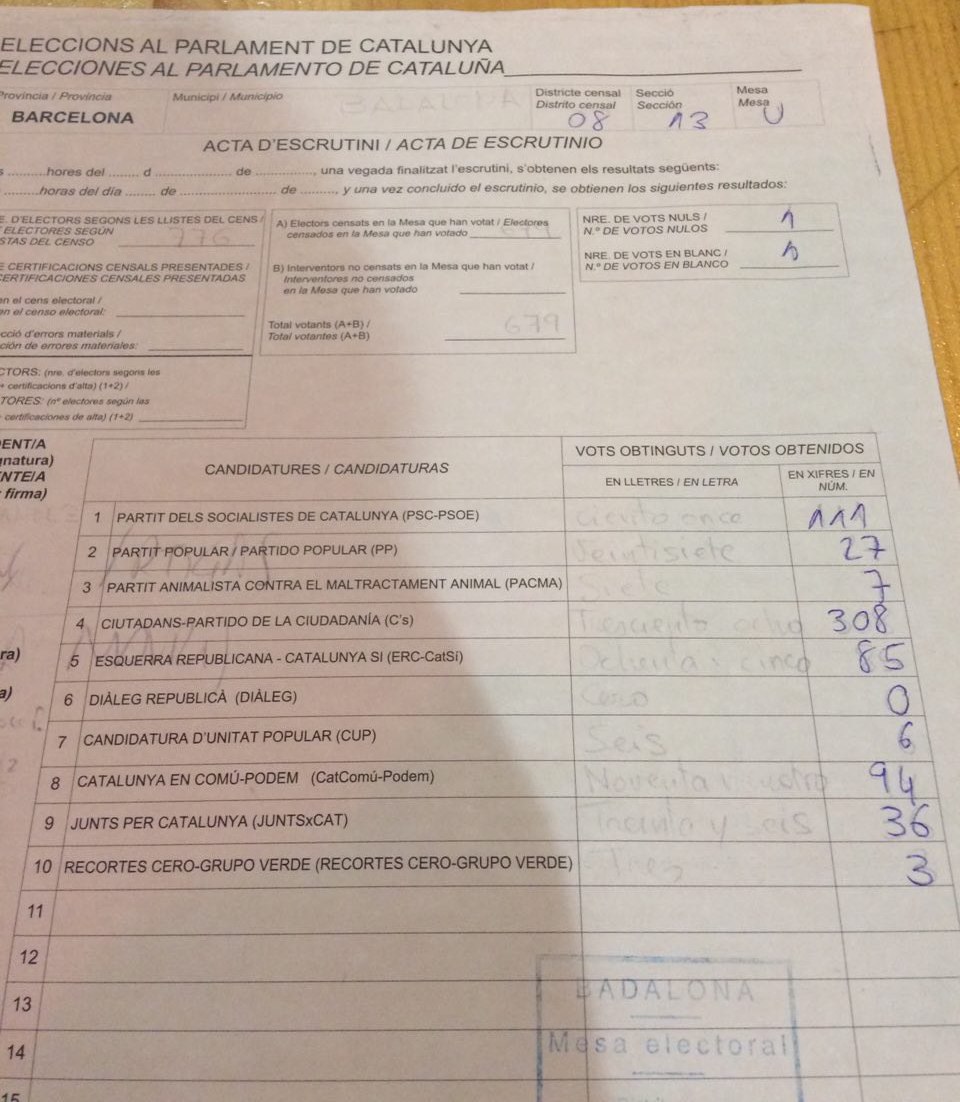 ELECCIONS AL PARLAMENT DE CATALUNYA
ELECCIONES AL PARLAMENTO DE CATALUÑA
Província / Provincia
BARCELONA
Municipi / Municipio
BADALONA
Districte censal
Distrito censal
08
Secció
Sección
13
Mesa
Mesa
U
ACTA D'ESCRUTINI / ACTA DE ESCRUTINIO
hores del ........ d ........................ de ............, una vegada finalitzat l'escrutini, s'obtenen els resultats següents:
horas del día ........ de ........................ de ........., y una vez concluido el escrutinio, se obtienen los siguientes resultados:
E. D'ELECTORS SEGONS LES LLISTES DEL CENS /
ELECTORES SEGÚN
STAS DEL CENSO
E CERTIFICACIONS CENSALS PRESENTADES /
CERTIFICACIONES CENSALES PRESENTADAS
en el cens electoral /
en el censo electoral:
cció d'errors materials /
ción de errores materiales:
CTORS: (nre. d'electors segons les
+ certificacions d'alta) (1+2) /
TORES: (nº electores según las
certificaciones de alta) (1+2)
A) Electors censats en la Mesa que han votat / Electores
censados en la Mesa que han votado
B) Interventors no censats en la Mesa que han votat /
Interventores no censados
en la Mesa que han votado
Total votants (A+B) /
Total votantes (A+B)
679
NRE. DE VOTS NULS /
N.º DE VOTOS NULOS
1
NRE. DE VOTS EN BLANC /
N.º DE VOTOS EN BLANCO
DENT/A
gnatura)
NTE/A
firma)
CANDIDATURES / CANDIDATURAS
VOTS OBTINGUTS / VOTOS OBTENIDOS
EN LLETRES / EN LETRA
EN XIFRES / EN
NÚM.
1 PARTIT DELS SOCIALISTES DE CATALUNYA (PSC-PSOE) Ciento once 111
2 PARTIT POPULAR / PARTIDO POPULAR (PP) Veintisiete 27
3 PARTIT ANIMALISTA CONTRA EL MALTRACTAMENT ANIMAL (PACMA) Siete 7
4 CIUTADANS-PARTIDO DE LA CIUDADANÍA (C's) Tresciento ocho 308
5 ESQUERRA REPUBLICANA - CATALUNYA SI (ERC-CatSí) Ochenta y cinco 85
6 DIÀLEG REPUBLICÀ (DIÀLEG) Cero 0
7 CANDIDATURA D'UNITAT POPULAR (CUP) Seis 6
8 CATALUNYA EN COMÚ-PODEM (CatComú-Podem) Noventa y cuatro 94
9 JUNTS PER CATALUNYA (JUNTSxCAT) Treinta y seis 36
10 RECORTES CERO-GRUPO VERDE (RECORTES CERO-GRUPO VERDE) Tres 3
11
12
13
14
15
ra)
a)
BADALONA
Mesa electoral